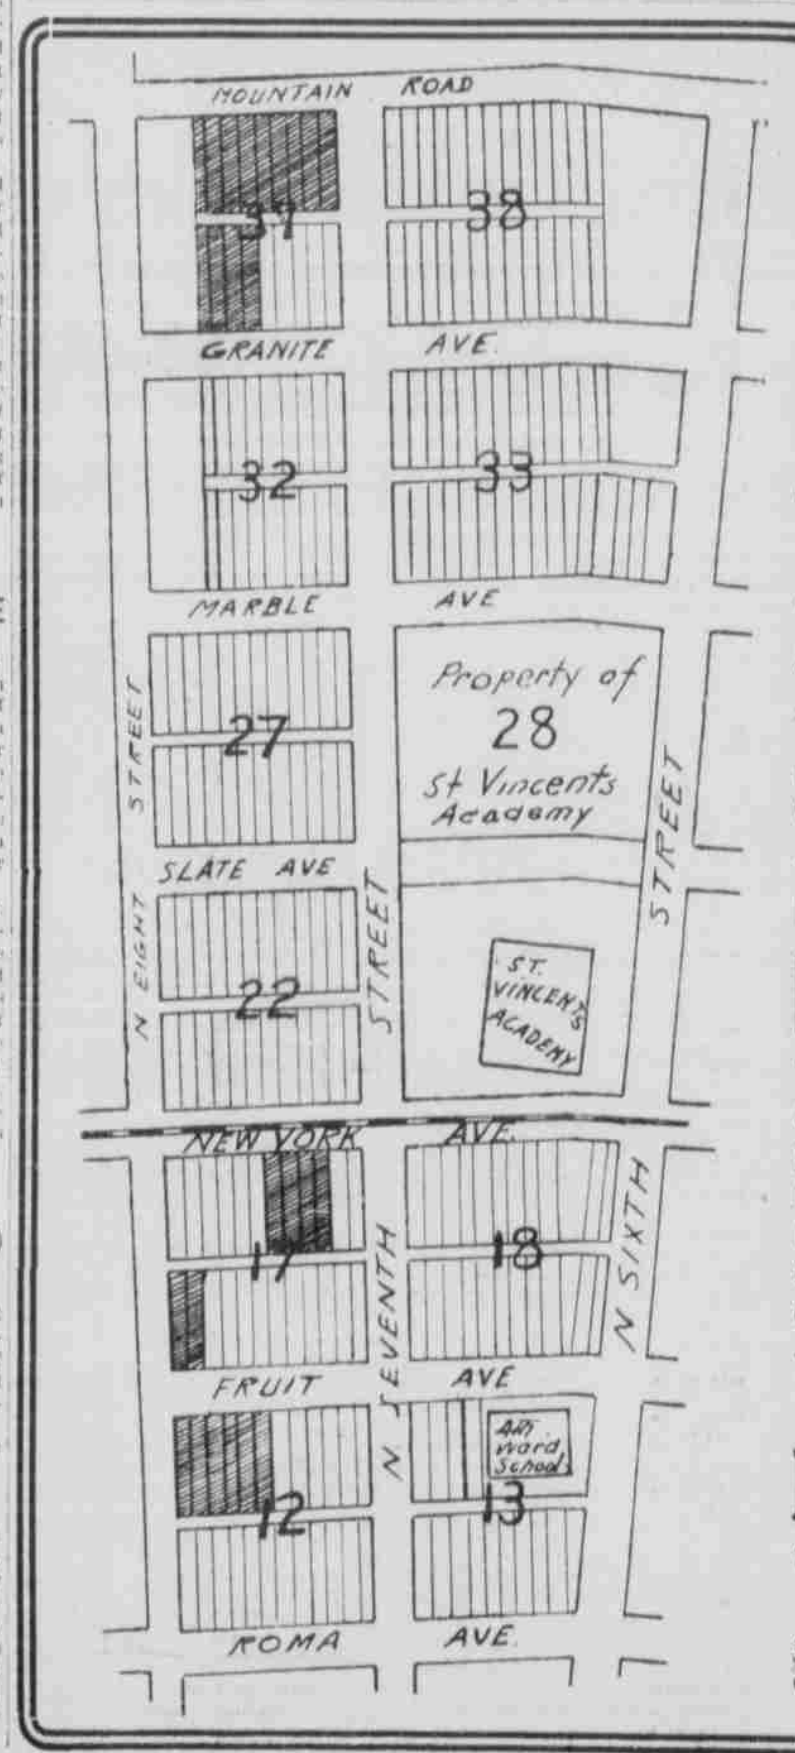 MOUNTAIN ROAD
37 38
GRANITE AVE.
32 33
MARBLE AVE
Property of
28
St Vincents
Academy
27
N EIGHT STREET
SLATE AVE
STREET
ST.
VINCENTS
ACADEMY
22
NEW YORK AVE.
17 18
N SEVENTH STREET
N SIXTH
FRUIT AVE
4th
Ward
School
12 13
ROMA AVE.